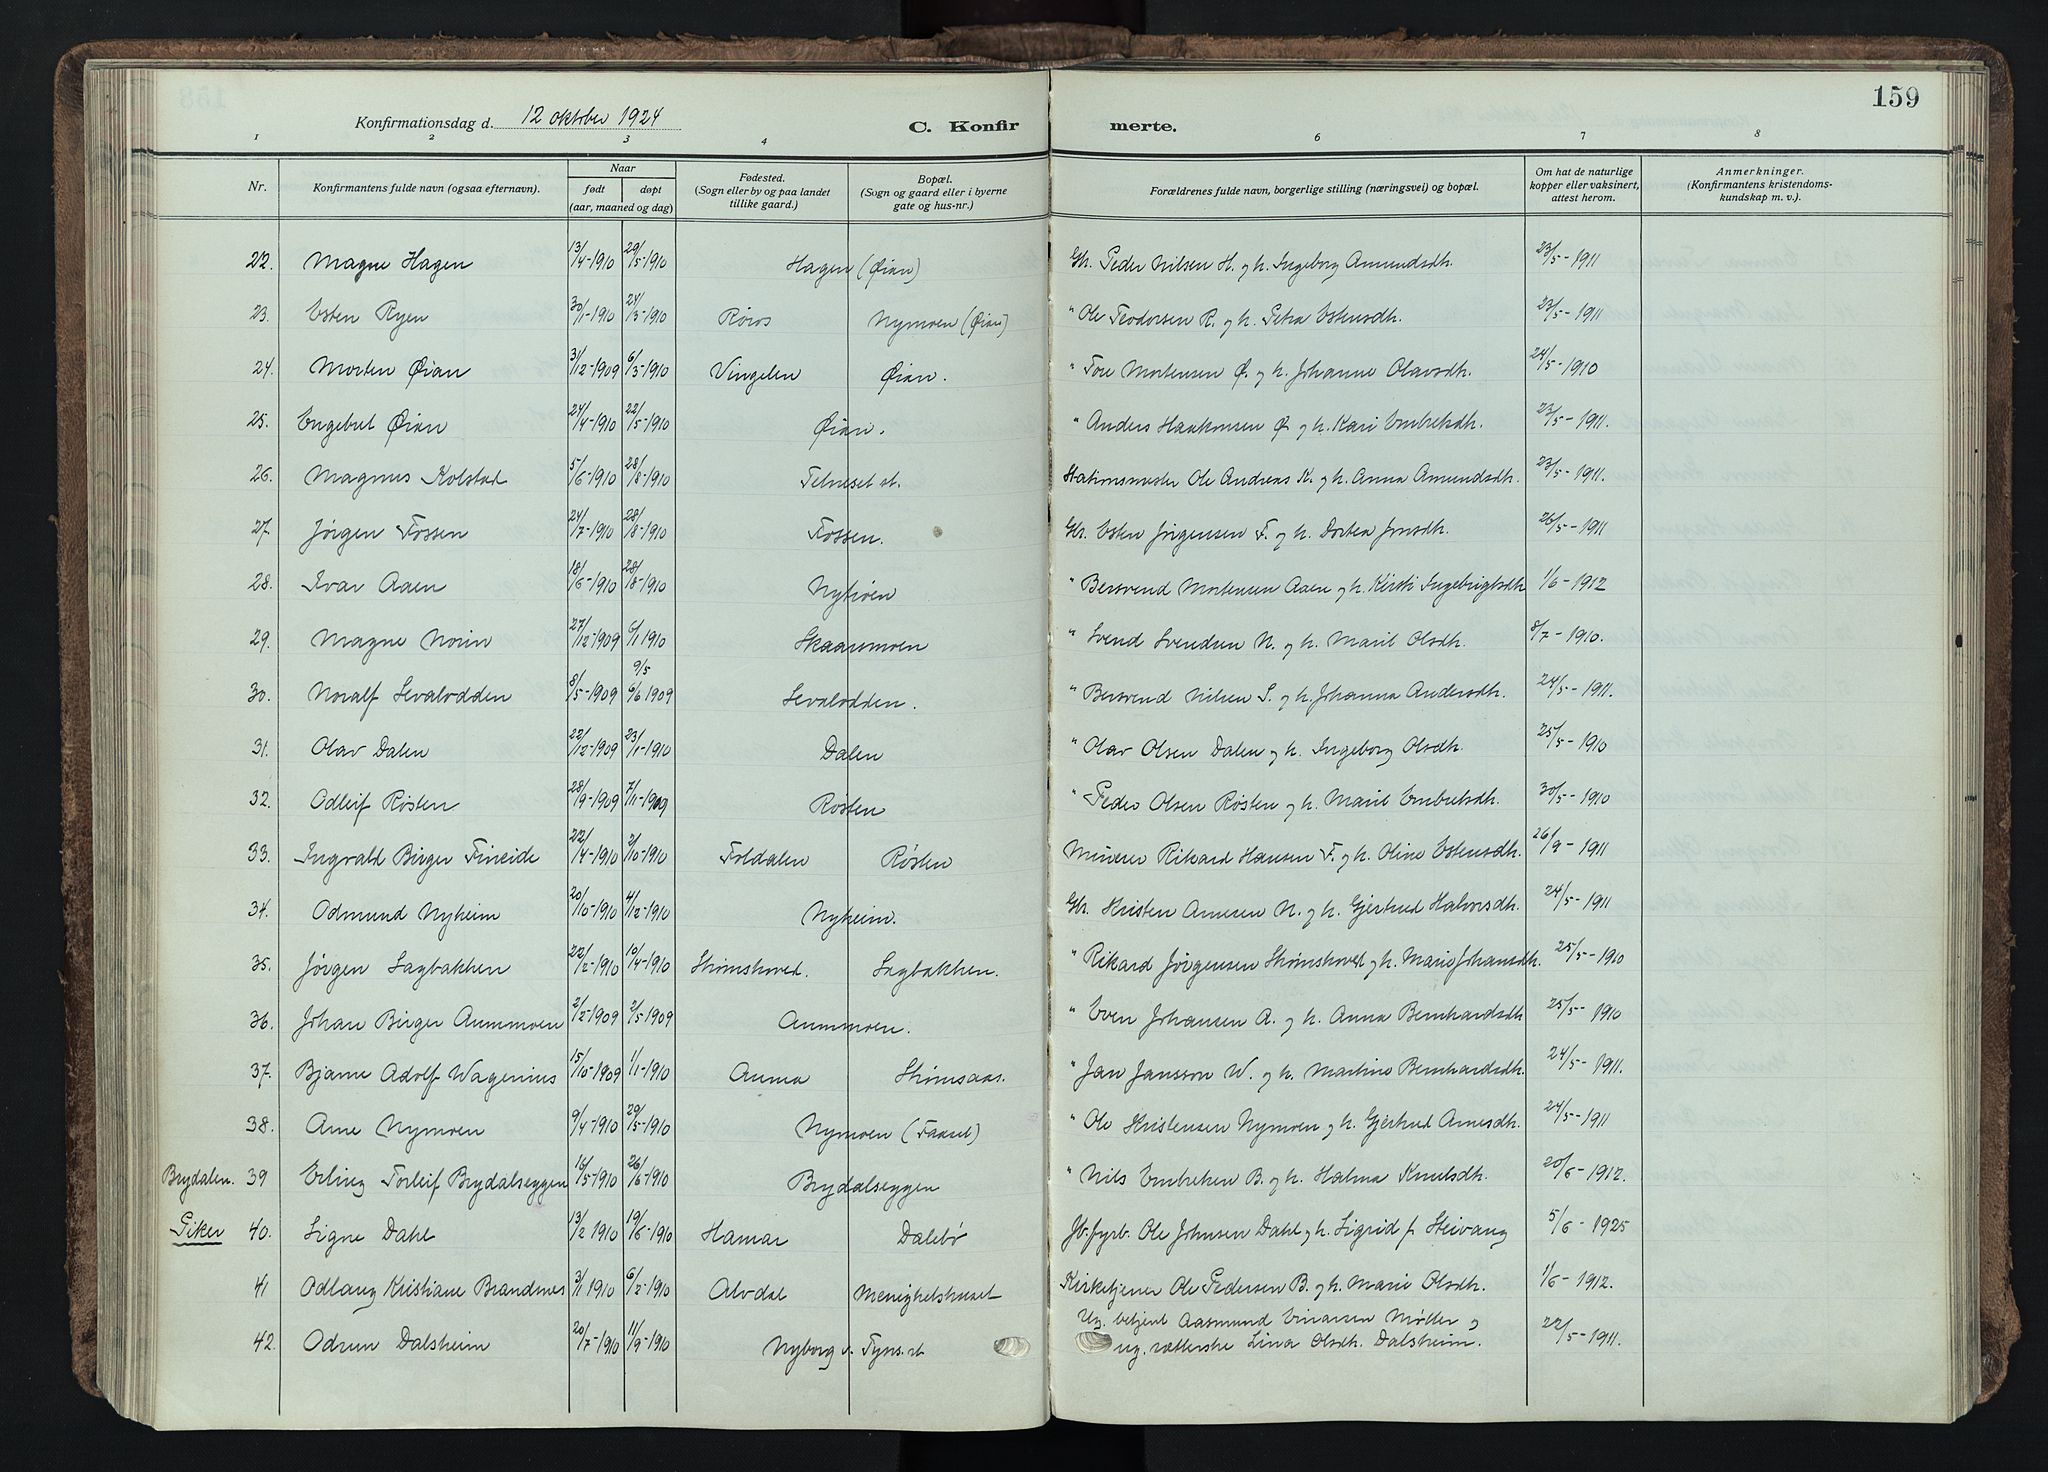 159
Konfirmationsdag d. 12 oktober 1924 C. Konfirmerte.
1 2 3 4 6 7 8
Nr. Konfirmantens fulde navn (ogsaa efternavn). Naar født døpt (aar, maaned og dag) Fødested. (Sogn eller by og paa landet tillike gaard.) Bopæl. (Sogn og gaard eller i byerne gate og hus-nr.) Forældrenes fulde navn, borgerlige stilling (næringsvei) og bopæl. Om hat de naturlige kopper eller vaksinert, attest herom. Anmerkninger. (Konfirmantens kristendomskundskap m. v.).
22. Magne Hagen 13/4-1910 29/5-1910 Hagen (Øian) Gb. Peder Nilsen H. og h. Ingeborg Amundsdh. 23/5-1911
23. Esten Ryen 30/1-1910 24/3-1910 Røros Nymoen (Øian) " Ole Teodorsen R. og h. Petra Estensdh. 23/5-1911
24. Morten Øian 3/12-1909 6/3-1910 Vingelen Øian. " Tore Mortensen Ø. og h. Johanne Olavsdh. 24/5-1910
25. Engebret Øian 24/4-1910 22/5-1910 Øian. " Anders Haakonsen Ø og h. Kari Embretsdh. 23/5-1911.
26. Magnus Kolstad 5/6-1910 28/8-1910 Telneset st. Stationsmester Ole Andreas K. og h. Anna Amundsdh. 23/5-1911.
27. Jørgen Fossen 24/7-1910 28/8-1910 Fossen. Gb. Esten Jørgensen F. og h. Dortea Jonsdh. 26/5-1911
28. Ivar Aaen 18/6-1910 28/8-1910 Nytrøen " Bersvend Mortensen Aaen og h. Kirsti Ingebrigtsdh 1/6-1912
29. Magne Morin 27/12-1909 6/1 1910 Skaanmoen " Svend Svendsen N. og h. Marit Olsdh. 8/7-1910.
30. Noralf Sevalodden 8/5-1909 9/5 6/6 1909 Sevalodden. " Bersvend Nilsen S. og h. Johanna Andersdh. 24/5-1911.
31. Olav Dalen 22/12-1909 23/1-1910 Dalen " Olav Olsen Dalen og h. Ingeborg Olsdh. 25/5-1910
32. Odleif Røsten 28/9-1909 7/11-1909 Røsten " Peder Olsen Røsten og h. Marit Embretsdh. 30/5-1910
33. Ingvald Birger Fineide 22/4-1910 2/10-1910 Foldalen Røsten Minerer Rikard Hansen F. og h. Oline Estensdh. 26/9-1911
34. Odmund Nyheim 20/10-1910 4/12-1910 Nyheim. Gb. Kristen Arnesen N. og h. Gjertrud Halvorsdh. 24/5-1911
35. Jørgen Sagbakken 22/2-1910 10/4-1910 Strømshoved. Sagbakken. " Rikard Jørgensen Strømshoved og h. Marie Johansdh. 25/5-1910
36. Johan Birger Aummoen 2/2-1909 2/5-1909 Aummoen. " Even Johansen A. og h. Anna Bernhardsdh 25/5-1910
37. Bjarne Adolf Wagenius 15/10-1909 1/1-1910 Auma Strømsaas. " Jan Jansson W. og h. Martine Bernhardsdh. 24/5-1911.
38. Arne Nymoen 9/4-1910 29/5-1910 Nymoen (Faaset) " Ole Kristensen Nymoen og h. Gjertrud Arnesdh. 24/5-1911
Brydalen. 39 Erling Torleif Brydalseggen 16/5-1910 26/6-1910 Brydalseggen " Nils Embretsen B. og h. Halma Knutsdh. 20/6-1912.
Piker 40. Signe Dahl 13/2 1910 19/6-1910 Hamar Dalebø Jb.fyrb. Ole Johnsen Dahl og h. Sigrid f. Steivang 5/6-1925
41 Odlaug Kristiane Brandnes 3/1 1910 6/2-1910 Alvdal Menighetshuset Kirketjener Ole Pedersen B. og h. Marie Olsdh. 1/6-1912.
42. Odrun Dalsheim 20/7-1910 11/9-1910 Nyborg v. Tyns. st. Ug. betjent Aasmund Einarsen Møller og
ug. Lina Olsdh. Dalsheim. 22/5-1911.